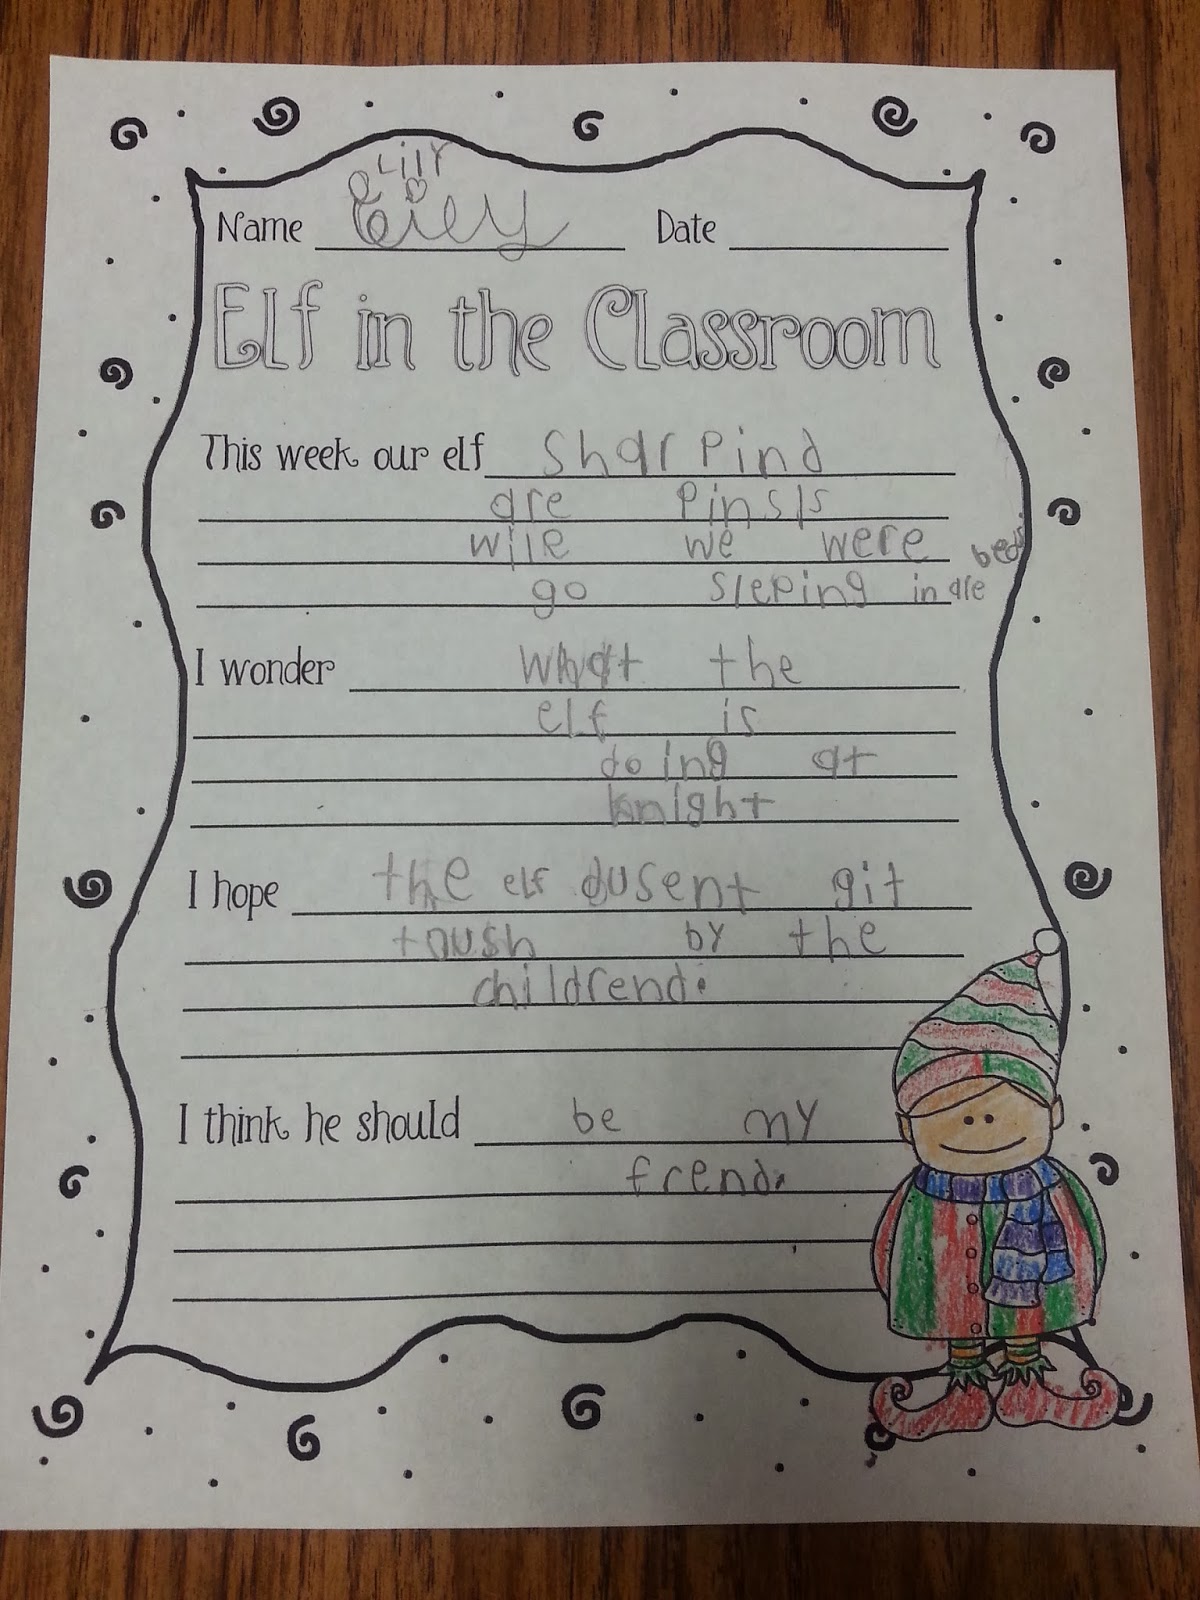 Lily
Name Lily Date
Elf in the Classroom
This week our elf sharpind
are pinsls
wile we were beds.
go sleping in are
I wonder what the
elf is
doing at
knight
I hope the elf dusent git
toush by the
childrend.
I think he should be my
frend.